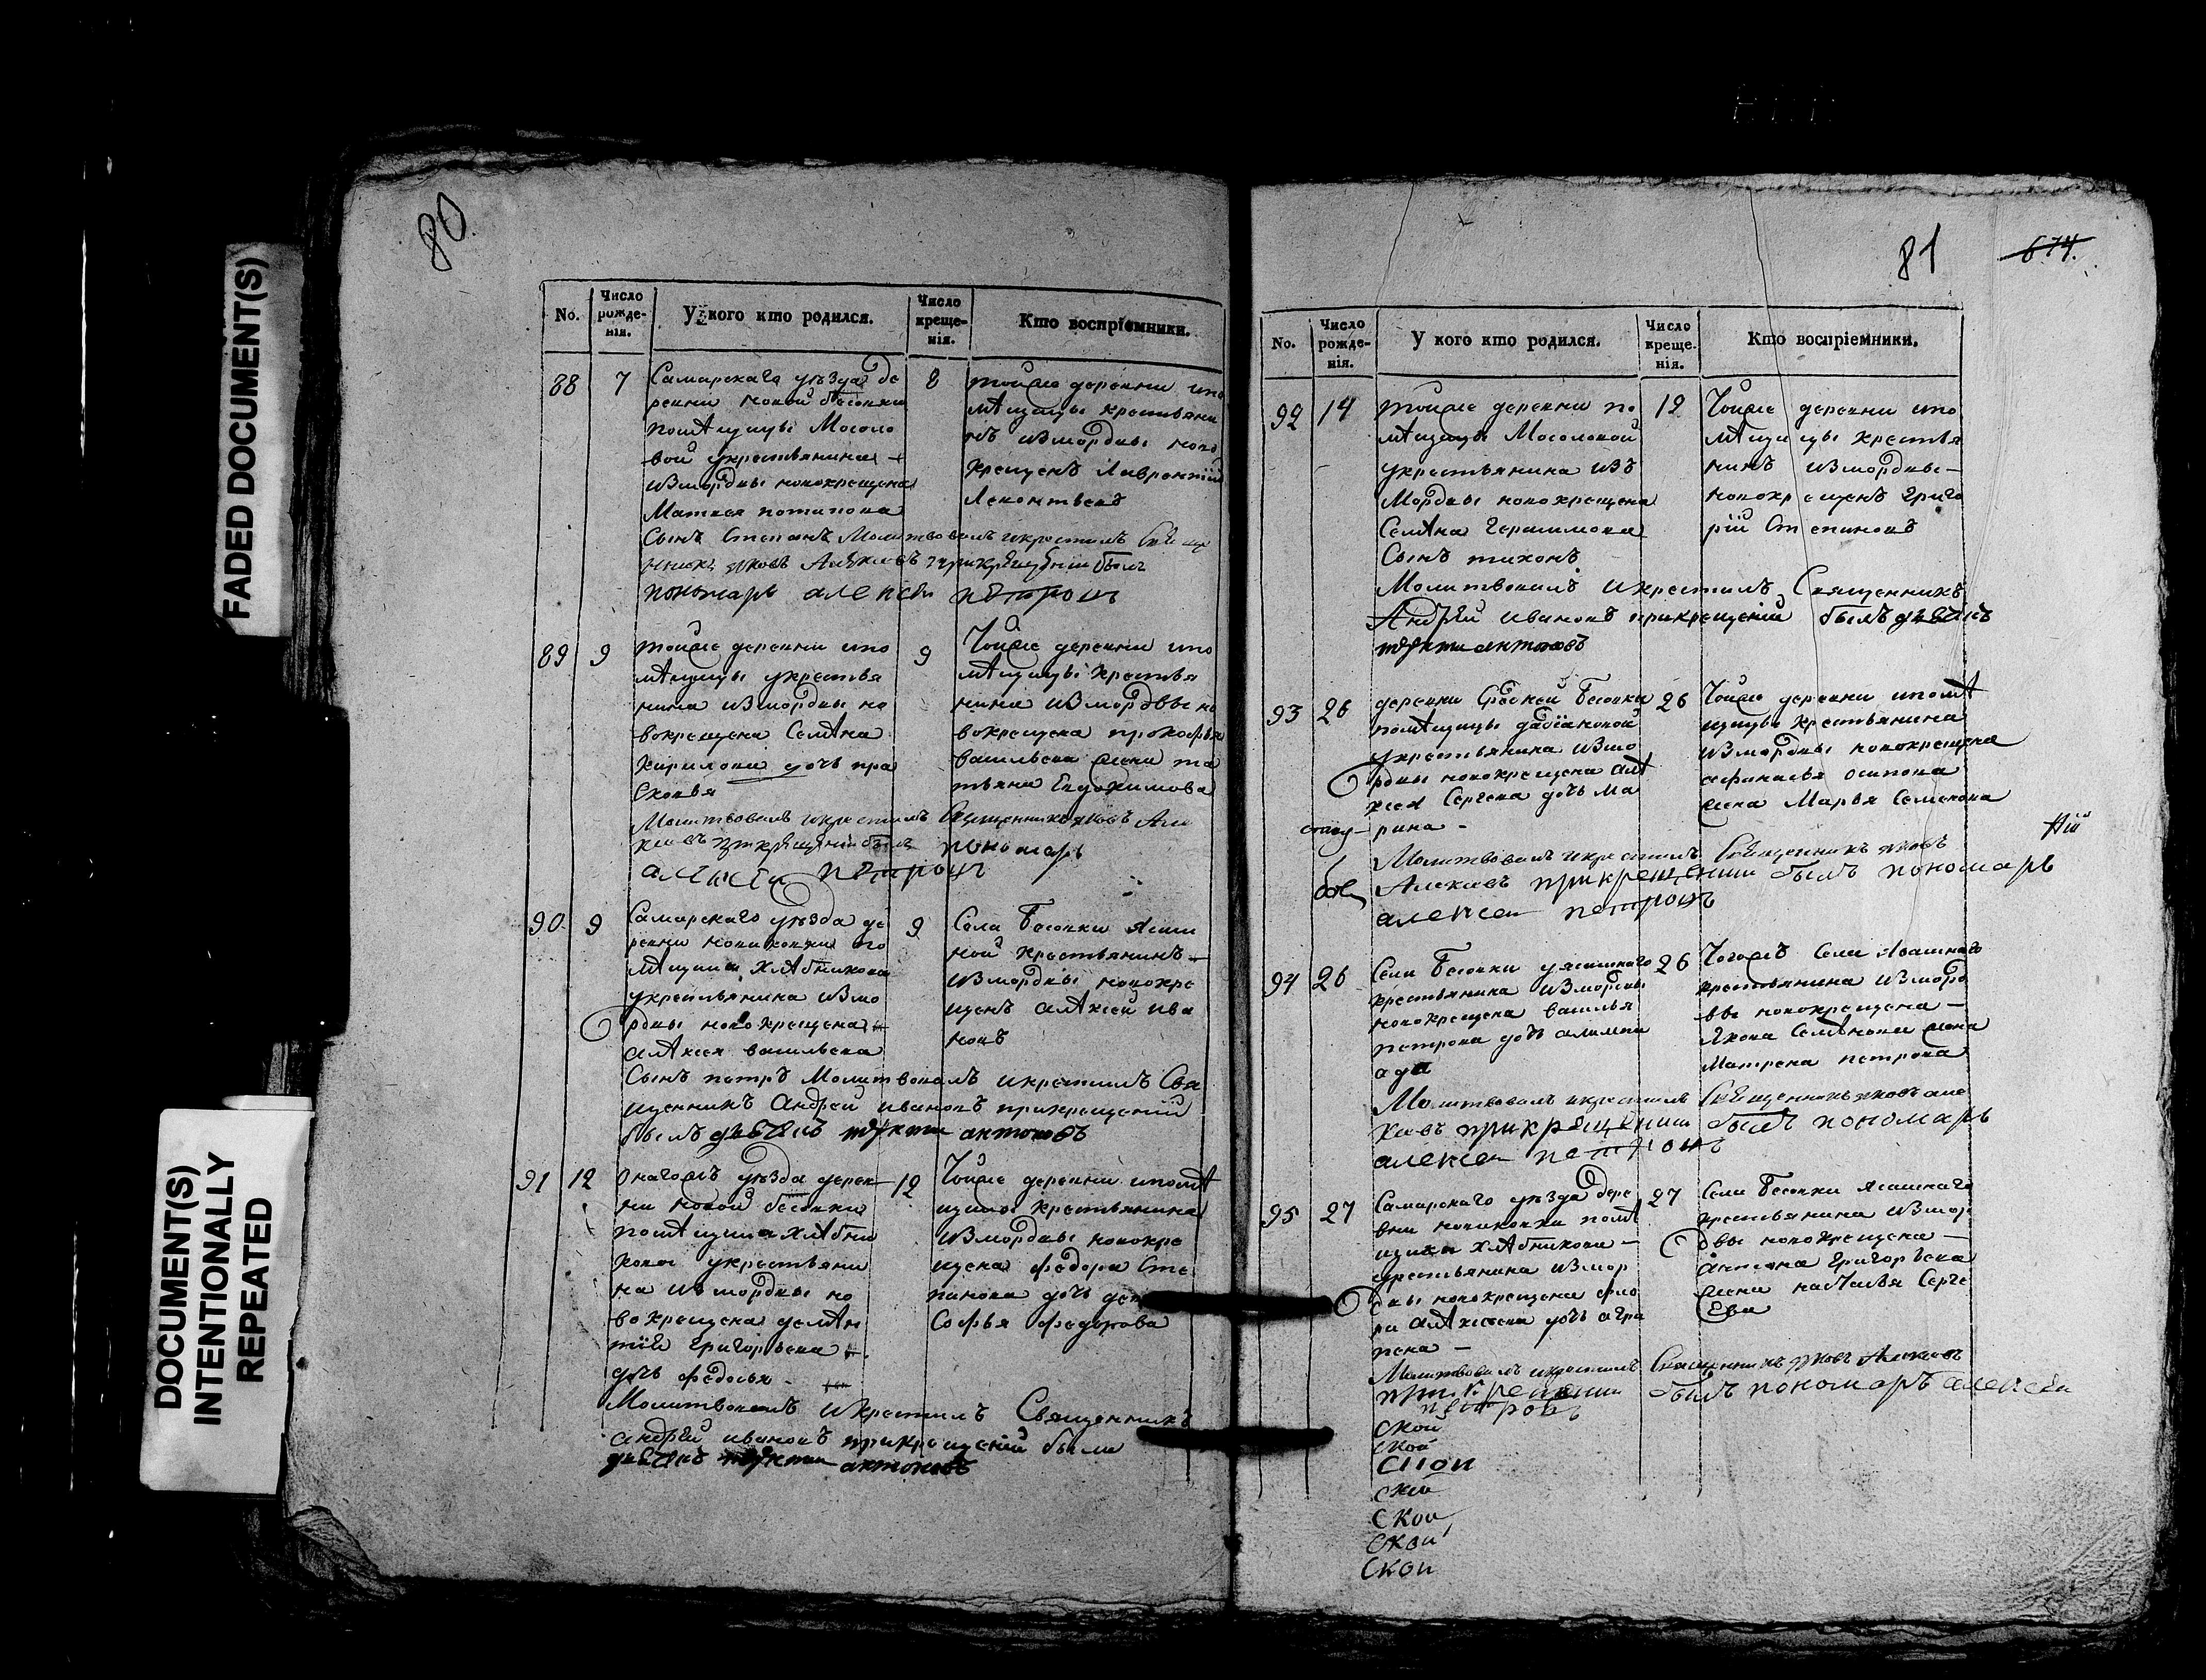 FADED DOCUMENT(S)
DOCUMENT(S)
INTENTIONALLY
REPEATED
80
No.
Число рожде-нія.
У кого кто родился.
Число креще-нія.
Кто воспріемники.
88 7
Самарскаго уѣзда де
ревни новой бесовки
помѣщицы Мосоло
вой укрестьянина
измордвы новокрещена
Матвея потапова
8
тойже деревни ипо
мѣщицы крестьяни
нъ измордвы ново
крещенъ Лаврентий
Леонтьевъ
Сынъ Степанъ Молитвовалъ икрестилъ
яковъ Алексеевъ прикрещении былъ
пономарь алексеи петровъ
89 9
тойже деревни ипо
мѣщицы укрестья
нина измордвы но
вокрещена Семѣна
Кирилова дочь пра
сковья
9
Тойже деревни ипо
мѣщицы крестья
нина измордвы но
вокрещена прокофья
васильева жена та
тьяна Евдокимова
Молитвовалъ икрестилъ Священникъ яковъ Але
пономарь
алексеи петровъ
90 9
Самарскаго уѣзда де
ревни
мѣщика Хлѣбникова
укрестьянина измо
рдвы новокрещена
алѣксея васильева
9
Села Бесовки Ясаш
ной крестьянинъ
измордвы новокре
щенъ алѣксей ива
новъ
Сынъ петръ Молитвовалъ икрестилъ Свя
щенникъ Андрей ивановъ прикрещении
былъ дьячекъ антоновъ
91 12
Онагожъ уѣзда дерев
ни новой бесовки
помѣщика хлѣбни
кова укрестьяни
на измордвы но
вокрещена
Григорьева
дочь федосья
12
Тойже деревни ипомѣ
щика крестьянина
измордвы новокре
щена федора Сте
панова дочь
Софья федорова
Молитвовалъ икрестилъ Священникъ
андрей ивановъ прикрещении были
дьячекъ антоновъ
81
674.
No.
Число рожде-нія.
У кого кто родился.
Число креще-нія.
Кто воспріемники.
92 14
тойже деревни по
мѣщицы Мосоловой
укрестьянина изъ
Мордвы новокрещена
Семѣна Герасимова
Сынъ тихонъ
19
Тойже деревни ипо
мѣщицы крестья
нинъ измордвы
новокрещенъ Григо
рій Степановъ
Молитвовалъ икрестилъ Священникъ
Андрей ивановъ прикрещении былъ дьячекъ
антоновъ
93 26
деревни Средней Бесовки
помѣщицы
укрестьянина измо
рдвы новокрещена алѣ
ксея Сергеева дочь ма
рина
26
Тойже деревни ипомѣ
щицы крестьянина
измордвы новокрещена
афанасья осипова
жена Марья Семенова
Молитвовалъ икрестилъ Священникъ яковъ
Алексеевъ прикрещении былъ пономарь
алексеи петровъ
94 26
Села Бесовки уясашнаго
крестьянина измордвы
новокрещена василья
петрова дочь олимпи
ада
26
Тогожъ Села Ясашнаго
крестьянина измор
вы новокрещена
Якова Семѣнова жена
Матрена петрова
Молитвовалъ икрестилъ Священникъ яковъ але
ксевъ прикрещении былъ пономарь
алексеи петровъ
95 27
Самарскаго уѣзда дере
вни помѣ
щика хлѣбникова
укрестьянина измор
двы новокрещена фло
ра алѣксеева дочь агра
пена
27
Села Бесовки Ясашнаго
крестьянина измор
двы новокрещена
антона Григорьева
жена наталья Серге
Ева
Молитвовалъ икрестилъ Священникъ яковъ Алексеевъ
прикрещении былъ пономарь алексеи
петровъ
Скои
Скои
Скои
Скои
Скои
Скои
Скои